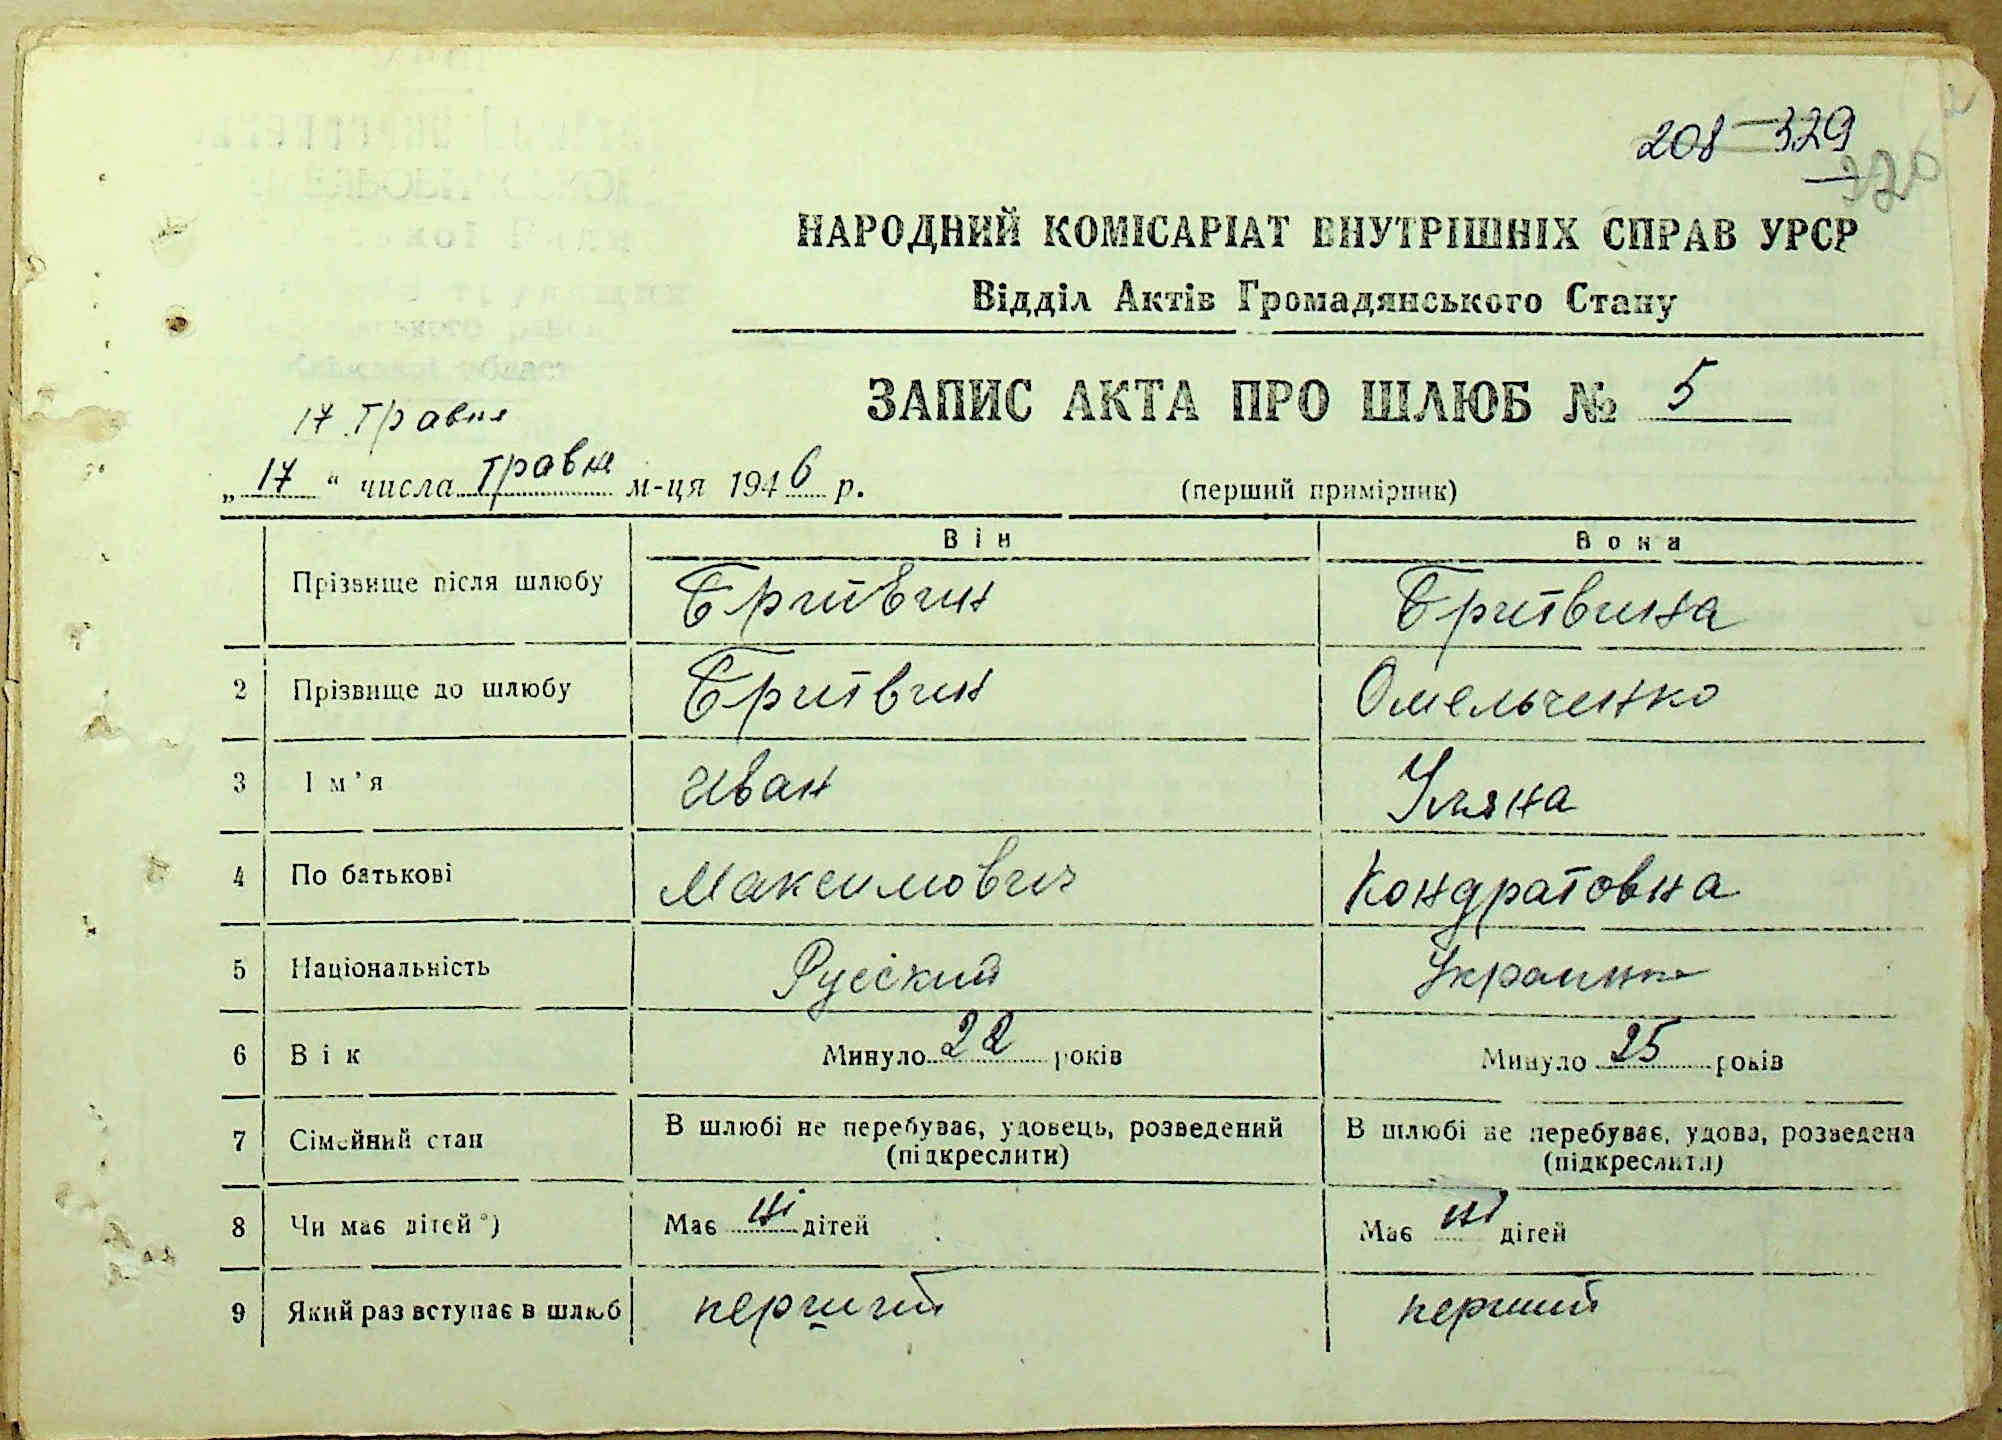 208 – 329
326
НАРОДНИЙ КОМІСАРІАТ ВНУТРІШНІХ СПРАВ УРСР
Відділ Актів Громадянського Стану
ЗАПИС АКТА ПРО ШЛЮБ № 5
17 травня
„ 17 “ числа травня м-ця 1946 р. (перший примірник)
Він Вона
Прізвище після шлюбу Бритвин Бритвина
2 Прізвище до шлюбу Бритвин Омельченко
3 Ім'я Иван Уляна
4 По батькові Максимович Кондратовна
5 Національність Русский Украинка
6 Вік Минуло 22 років Минуло 25 років
7 Сімейний стан В шлюбі не перебуває, удовець, розведений В шлюбі не перебуває, удова, розведена
(підкреслити) (підкреслити)
8 Чи має дітей*) Має ні дітей Має ні дітей
9 Який раз вступає в шлюб перший перший